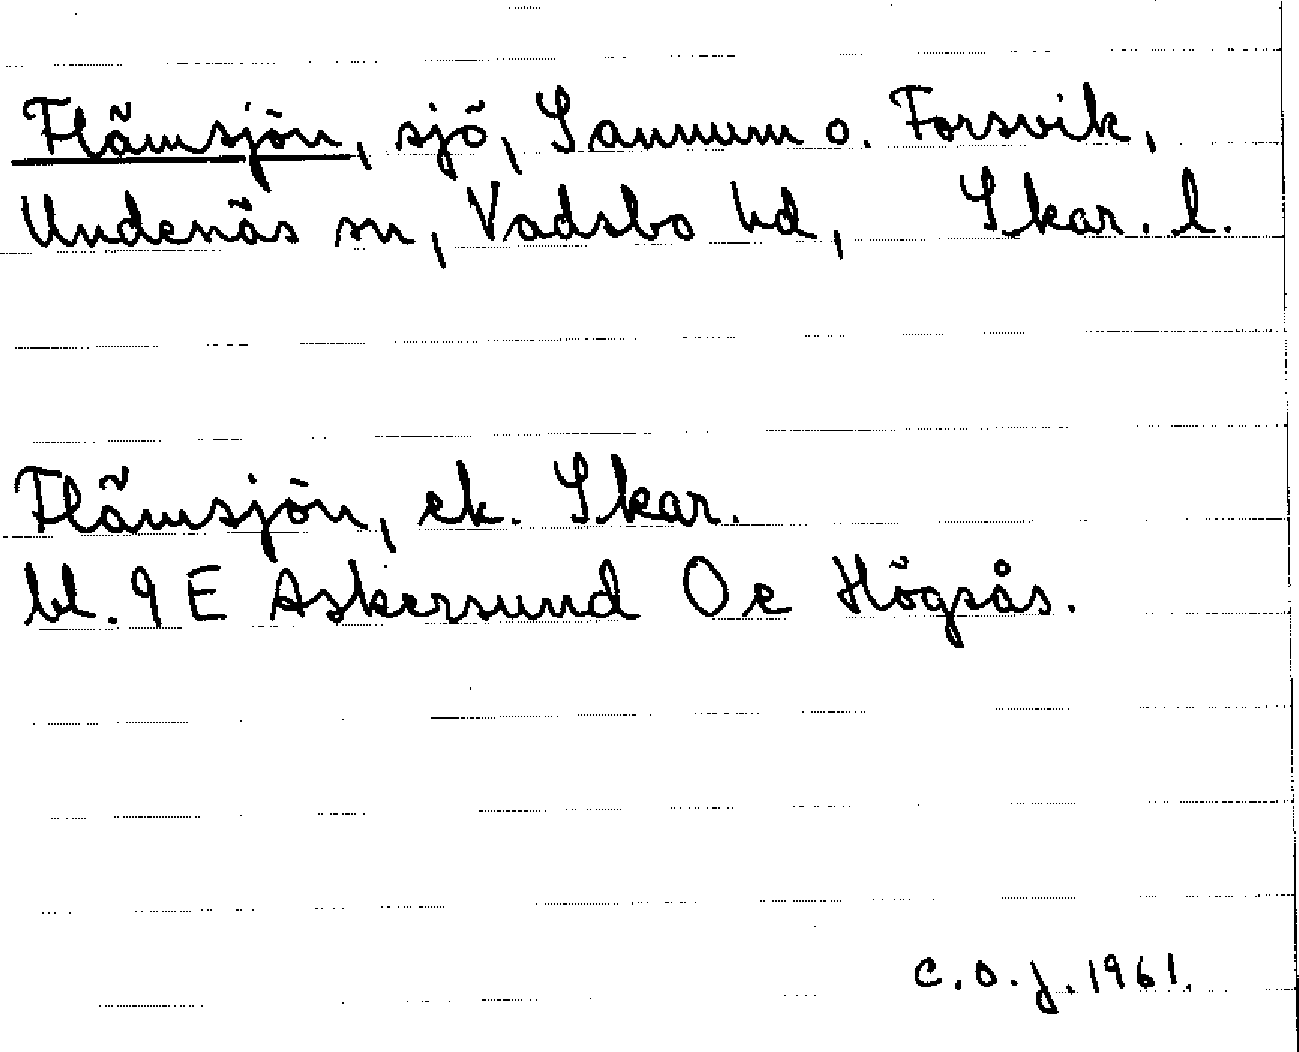 Flämsjön, sjö, Sannum o. Forsvik,
Undenäs sn, Vadsbo hd, Skar. l.
Flämsjön, ek. Skar.
bl. 9 E Askersund Oe Högsås.
C.O.J. 1961.